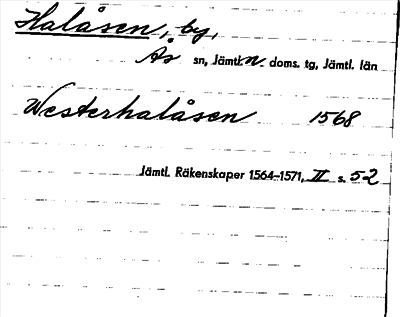 Halåsen, by,
Ås sn, Jämtl. n doms. tg, Jämtl. län
Westerhalåsen 1568
Jämtl. Räkenskaper 1564–1571, II s. 52